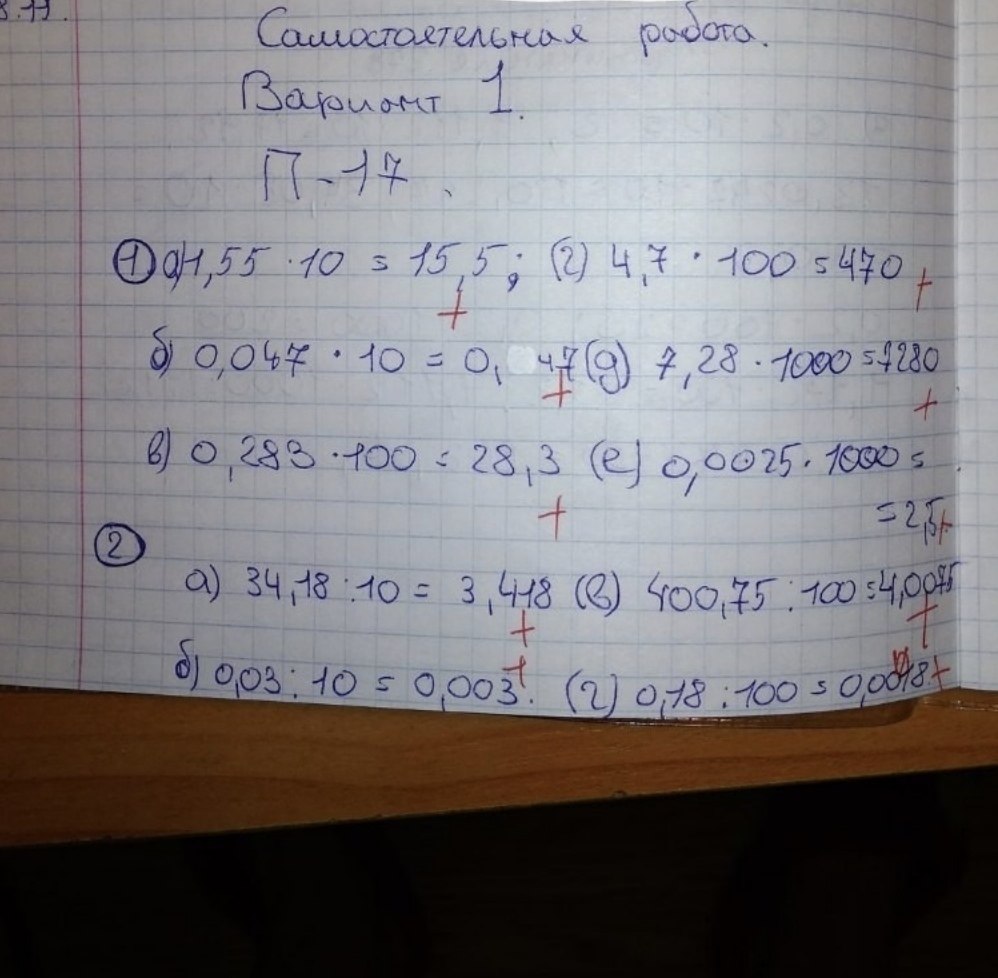 8.11
Самостоятельная работа.
Вариант 1.
П-17.
① а) 1,55 · 10 = 15,5; (г) 4,7 · 100 = 470 +
+
б) 0,047 · 10 = 0, 47 (д) 7,28 · 1000 = 7280
+ +
в) 0,283 · 100 = 28,3 (е) 0,0025 · 1000 =
+ = 2,5 +
②
а) 34,18 : 10 = 3,418 (в) 400,75 : 100 = 4,0075
+ +
б) 0,03 : 10 = 0,003. + (г) 0,18 : 100 = 0,0018 +